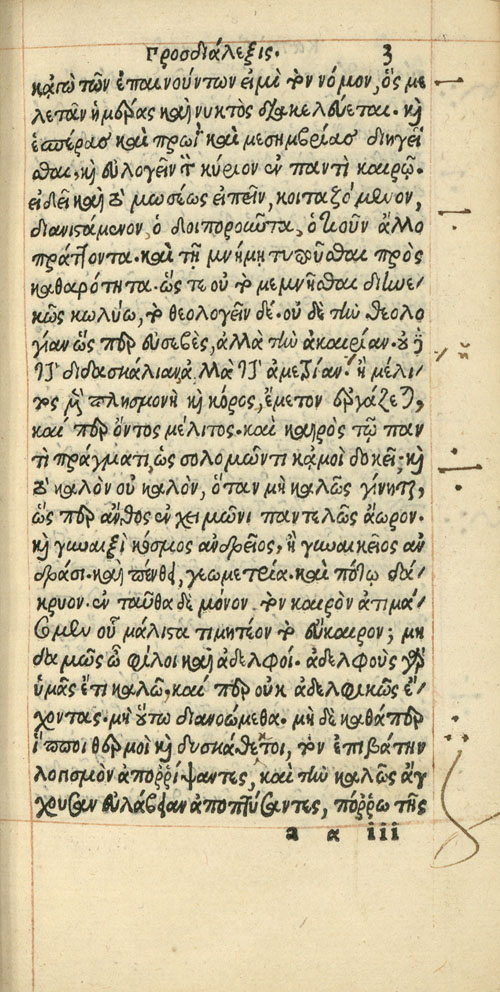 Προσδιάλεξις. 3
κἀγὼ τῶν ἐπαινούντων εἰμὶ τὸν νόμον, ὅς με
λετᾶν ἡμέρας καὶ νυκτὸς διακελεύεται. καὶ
ἑσπέρας καὶ πρωῒ καὶ μεσημβρίας διηγεῖ
σθαι. καὶ εὐλογεῖν τὸν κύριον ἐν παντὶ καιρῷ.
εἰ δεῖ καὶ τὸ μωσέως εἰπεῖν, κοιταζόμενον,
διανιστάμενον, ὁδοιποροῦντα, ὁτιοῦν ἄλλο
πράττοντα. καὶ τῇ μνήμῃ τυποῦσθαι πρὸς
καθαρότητα. ὥστε οὐ τὸ μεμνῆσθαι διηνε
κῶς κωλύω, τὸ θεολογεῖν δέ. οὐδὲ τὴν θεολο
γίαν ὥσπερ εὐσεβὲς, ἀλλὰ τὴν ἀκαιρίαν. οὐδὲ
τὴν διδασκαλίαν, ἀλλὰ τὴν ἀμετρίαν. ἢ μέλι
τος μὲν πλησμονὴ καὶ κόρος, ἔμετον ἐργάζεται,
καί περ ὄντος μέλιτος. καὶ καιρὸς τῷ παν
τὶ πράγματι, ὡς σολομῶντι κἀμοὶ δοκεῖ; καὶ
τὸ καλὸν οὐ καλὸν, ὅταν μὴ καλῶς γίνηται,
ὥσπερ ἄνθος ἐν χειμῶνι παντελῶς ἄωρον.
καὶ γυναιξὶ κόσμος ἀνδρεῖος, ἢ γυναικεῖος ἀν
δράσι. καὶ πένθει, γεωμετρία. καὶ πότῳ δά
κρυον. ἐνταῦθα δὲ μόνον τὸν καιρὸν ἀτιμά
σομεν οὗ μάλιστα τιμητέον τὸ εὔκαιρον; μη
δαμῶς ὦ φίλοι καὶ ἀδελφοί. ἀδελφοὺς γὰρ
ὑμᾶς ἔτι καλῶ, καί περ οὐκ ἀδελφικῶς ἔ
χοντας. μὴ οὕτω διανοώμεθα. μὴ δὲ καθάπερ
ἵπποι θερμοὶ καὶ δυσκάθετοι, τὸν ἐπιβάτην
λογισμὸν ἀποῤῥίψαντες, καὶ τὴν καλῶς ἄγ
χουσαν εὐλάβειαν ἀποπτύσαντες, πόῤῥω τῆς
a α iii